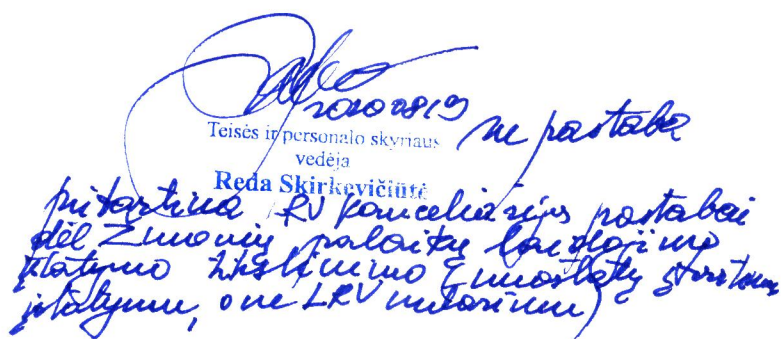 2020 08 19
su pastaba
Teisės ir personalo skyriaus
vedėja
Reda Skirkevičiūtė
pritartina RV kanceliarijos pastabai
dėl Žmonių palaikų laidojimo
įstatymo (nuostatų
įstatymu, o ne LRV nutarimu)